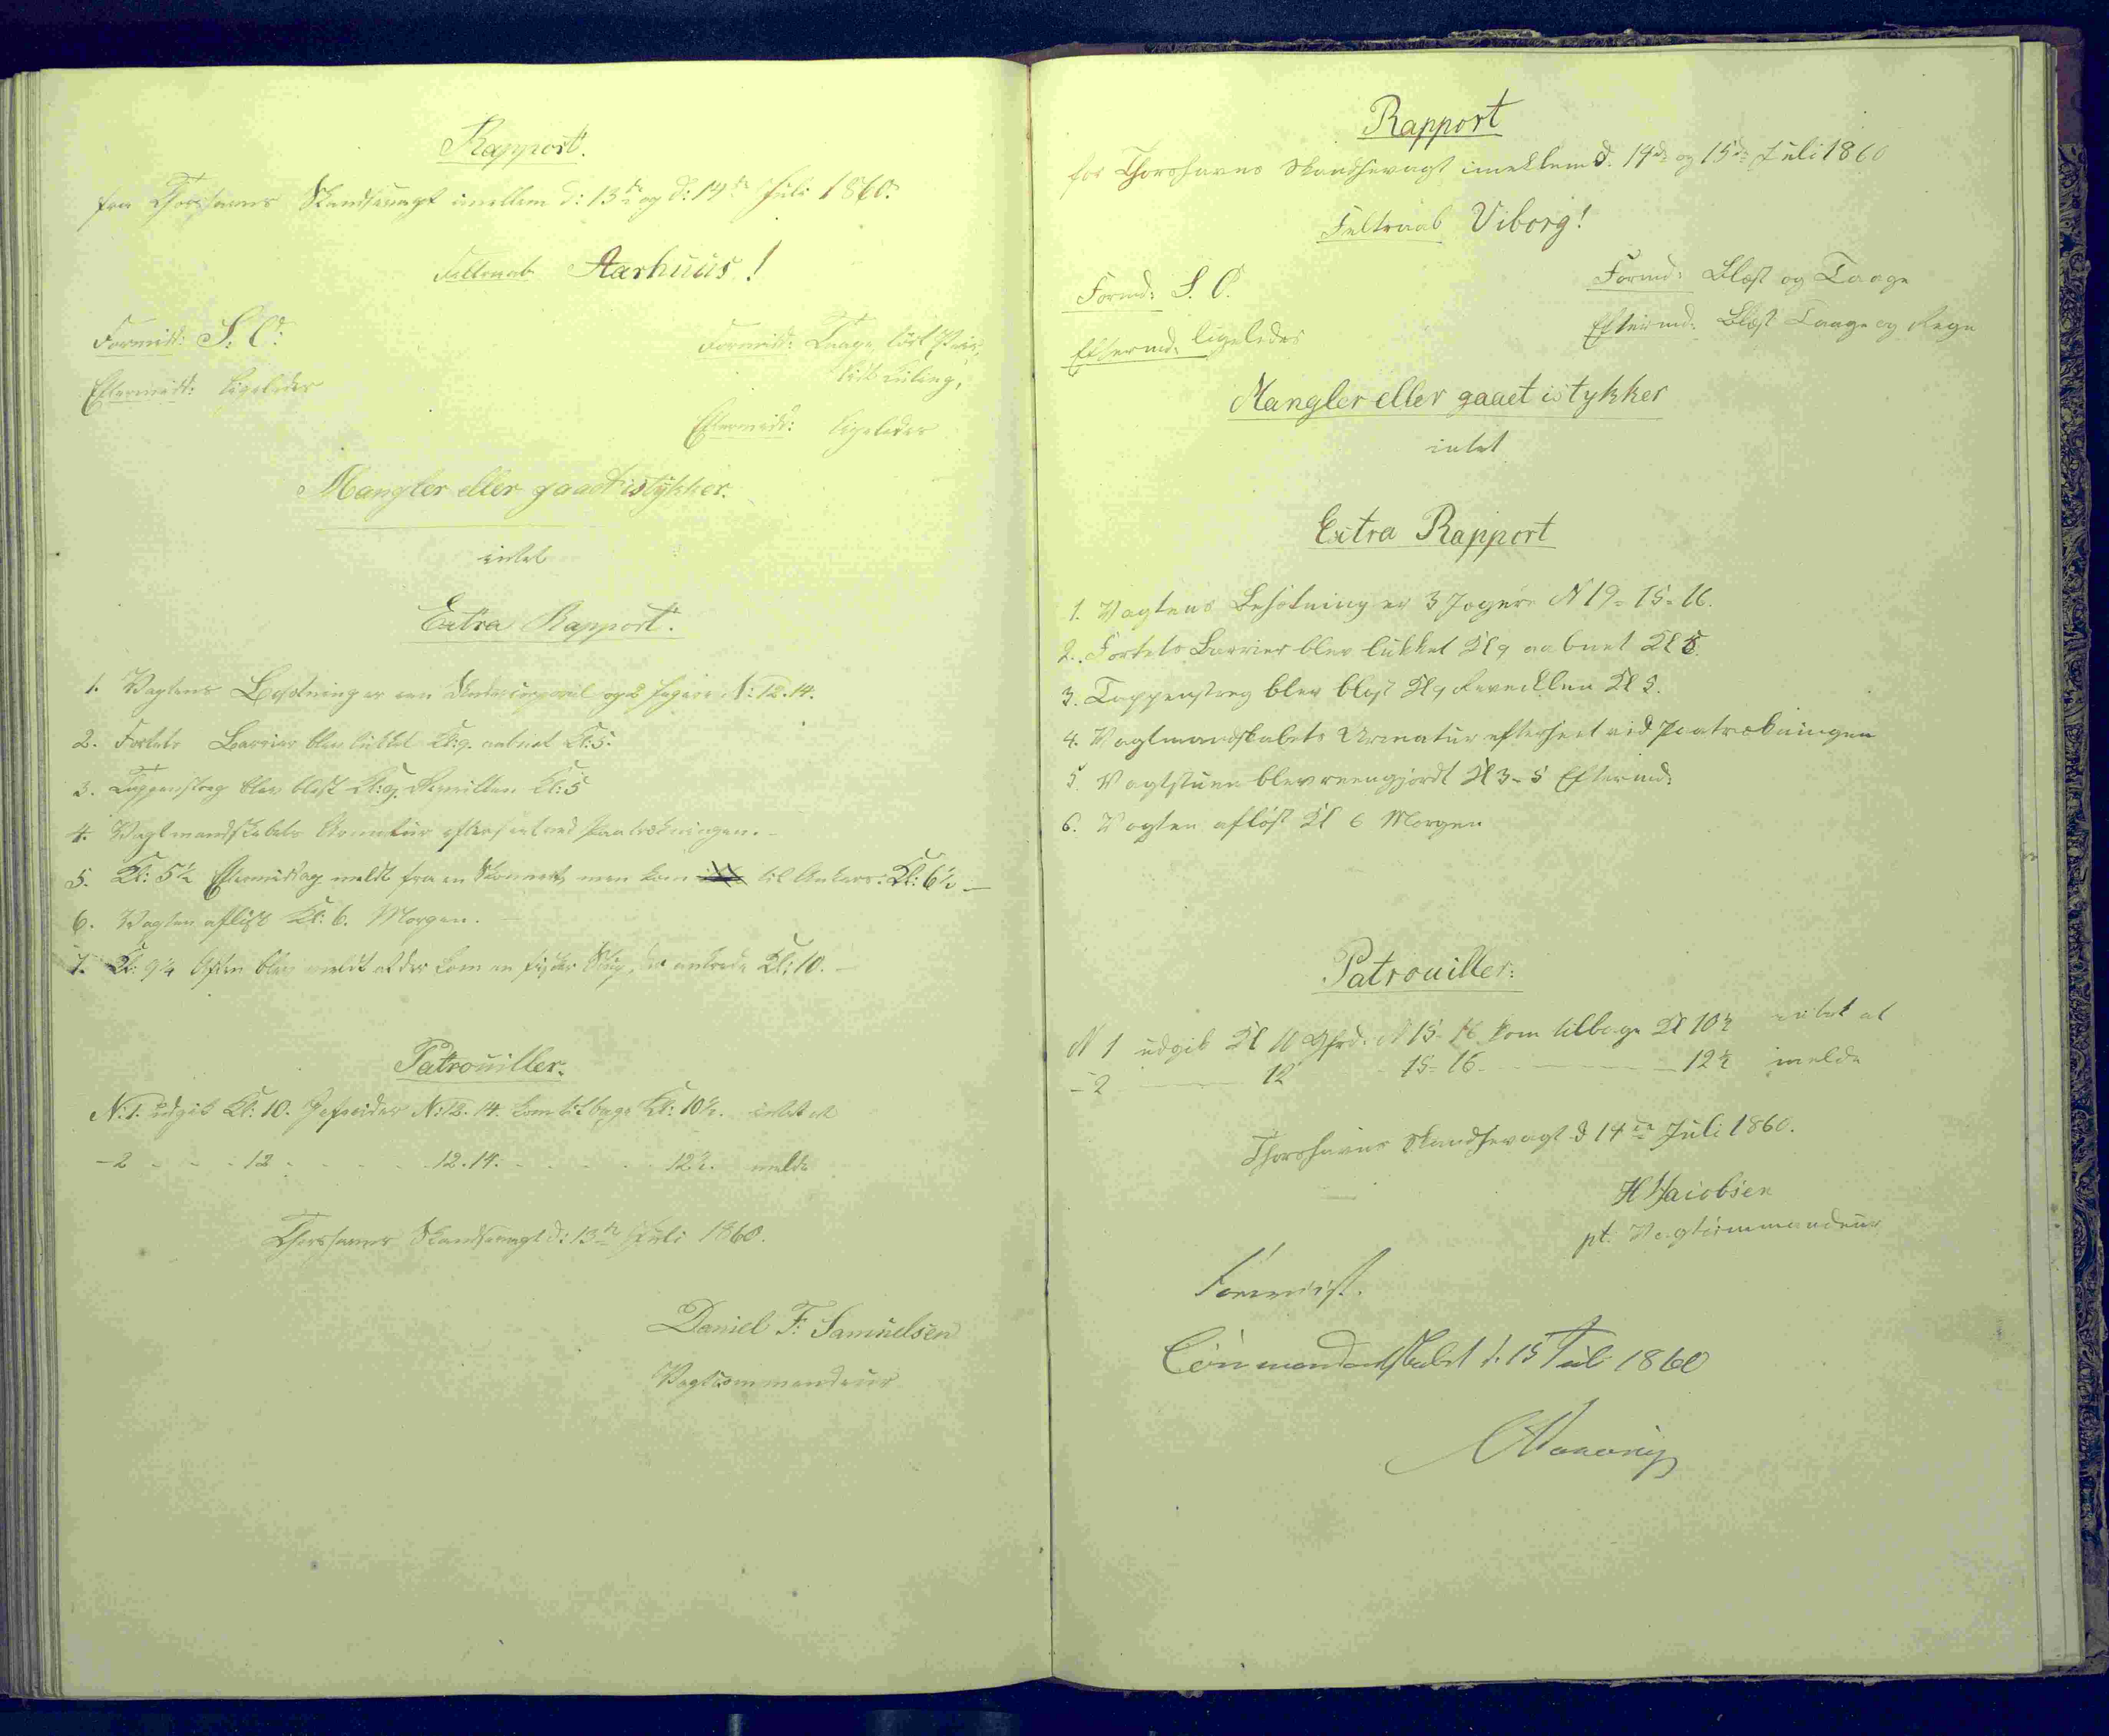 Rapport.
fra Thorshavns Skandsevagt imellem d: 13de og d: 14de Juli 1860.
Feltraab Aarhuus!
Formidd: S. O:
Eftermidd: ligeledes
Formidd: Taage
Kuling,
Eftermidd: ligeledes
Mangler eller gaaet istykker.
intet
Extra Rapport.
1. Vagtens Besætning er een Undercorporal og 2 Jægere N: 12.14.
2. Fortets Barrier blev lukket Kl: 9. aabnet Kl: 5.
3. Tappenstreg blev blæst Kl: 9. Reveillen Kl: 5
4. Vagtmandskabets Armatur efterseet ved Paatrækningen. -
5. Kl: 5½ Eftermiddag meldt fra en Skonnert, men kom til Ankers: Kl: 6½ —
6. Vagten afløst Kl: 6. Morgen. -
7. Kl: 9¼ Aften blev meldt at der kom en fisker Slup, der ankrede Kl: 10. -
Patrouiller.
N: 1. udgik Kl: 10. Gefreider N: 12. 14. kom tilbage Kl: 10½. intet at
- 2 - - - 12 - - - - 12.14. - - - - - 12½. melde
Thorshavns Skandsevagt d: 13de Juli 1860.
Daniel F. Samuelsen
Vagtcommandeur
Rapport
for Thorshavns Skandsevagt imellem d. 14de og 15de Juli 1860
Feltraab Viborg!
Formd: S. O.
Eftermd: ligeledes
Formd: Blæst og Taage
Eftermd: Blæst Taage og Regn
Mangler eller gaaet istykker
intet
Extra Rapport
1. Vagtens Besætning er 3 Jægere N 19 - 15 - 16.
2. Fortets Barrier blev lukket Kl 9 aabnet Kl 5.
3. Tappenstreg blev blæst Kl 9 Reveillen Kl 5.
4. Vagtmandskabets Armatur efterseet ved Paatrækningen
5. Vagtstuen blev reengjordt Kl 3 - 5 Eftermd:
6. Vagten afløst Kl 6 Morgen
Patrouiller:
N 1 udgik Kl 10 Gfrd. N 15 - 16 kom tilbage Kl 10½ intet at
- 2 — 12 - 15 - 16 - — 12½ melde
Thorshavns Skandsevagt d 14de Juli 1860.
H Jacobsen
pt. Vagtcommandeur
Foreviist.
Commandantskabet d. 15 Juli 1860